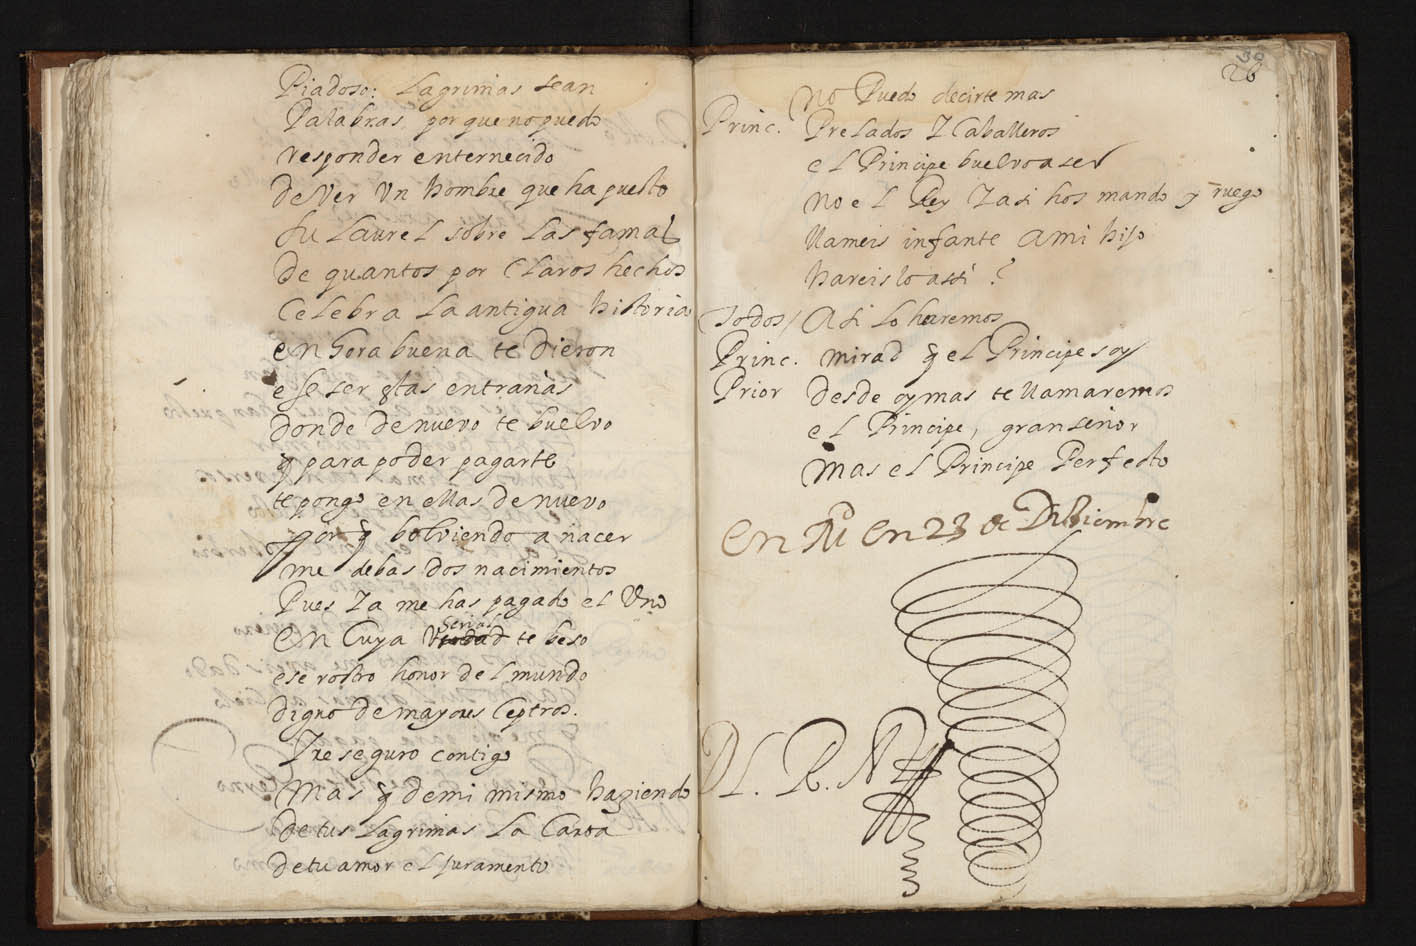 Piadoso: Lagrimas sean
Palabras, por que no puedo
responder enternecido
de Ver Un hombre que ha puesto
su Laurel sobre Las famas
de quantos por Claros hechos
Celebra La antigua historia
en hora buena te dieron
ese ser estas entrañas
donde de nuevo te buelvo
y para poder pagarte
te pongo en ellas de nuevo
por q bolviendo a naçer
me debas dos nacimientos
Pues Ya me has pagado el Uno
en Cuya Serial te beso
ese rostro honor del mundo
digno de mayores Ceptros.
Yre seguro contigo
mas q de mi mismo haziendo
de tus Lagrimas La Carta
de tu amor el juramento
30
26
no Puedo decirte mas
Princ. Prelados Y Caballeros
el Principe buelvo a ser
no el Rey Y asi hos mando y ruego
llameis infante a mi hijo
hareislo assi?
Todos / Asi Lo haremos
Princ. mirad q el Principe soy
Prior desde oy mas te llamaremos
el Principe, gran señor
mas el Principe Perfecto
En Md en 23 de Diziembre